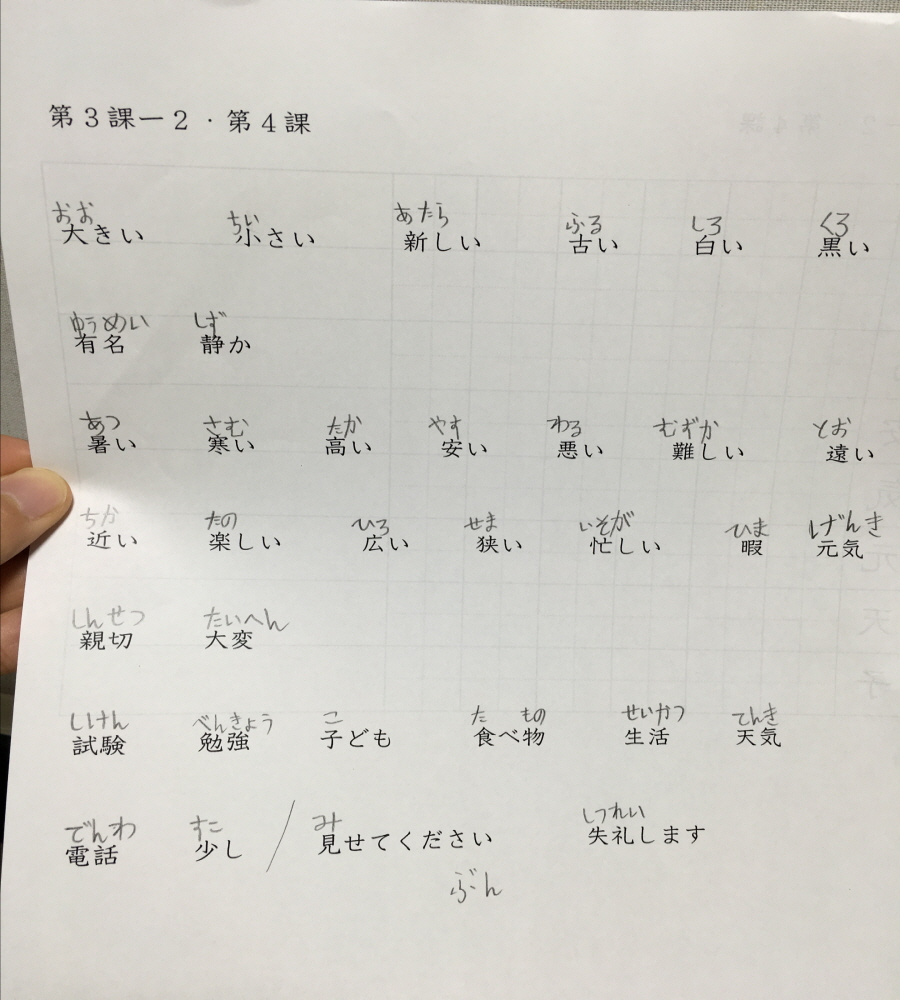 第3課ー2・第4課
おお ちい あたら ふる しろ くろ
大きい 小さい 新しい 古い 白い 黒い
ゆうめい しず
有名 静か
あつ さむ たか やす わる むずか とお
暑い 寒い 高い 安い 悪い 難しい 遠い
ちか たの ひろ せま いそが ひま げんき
近い 楽しい 広い 狭い 忙しい 暇 元気
しんせつ たいへん
親切 大変
しけん べんきょう こ た もの せいかつ てんき
試験 勉強 子ども 食べ物 生活 天気
でんわ すこ み しつれい
電話 少し / 見せてください 失礼します
ぶん